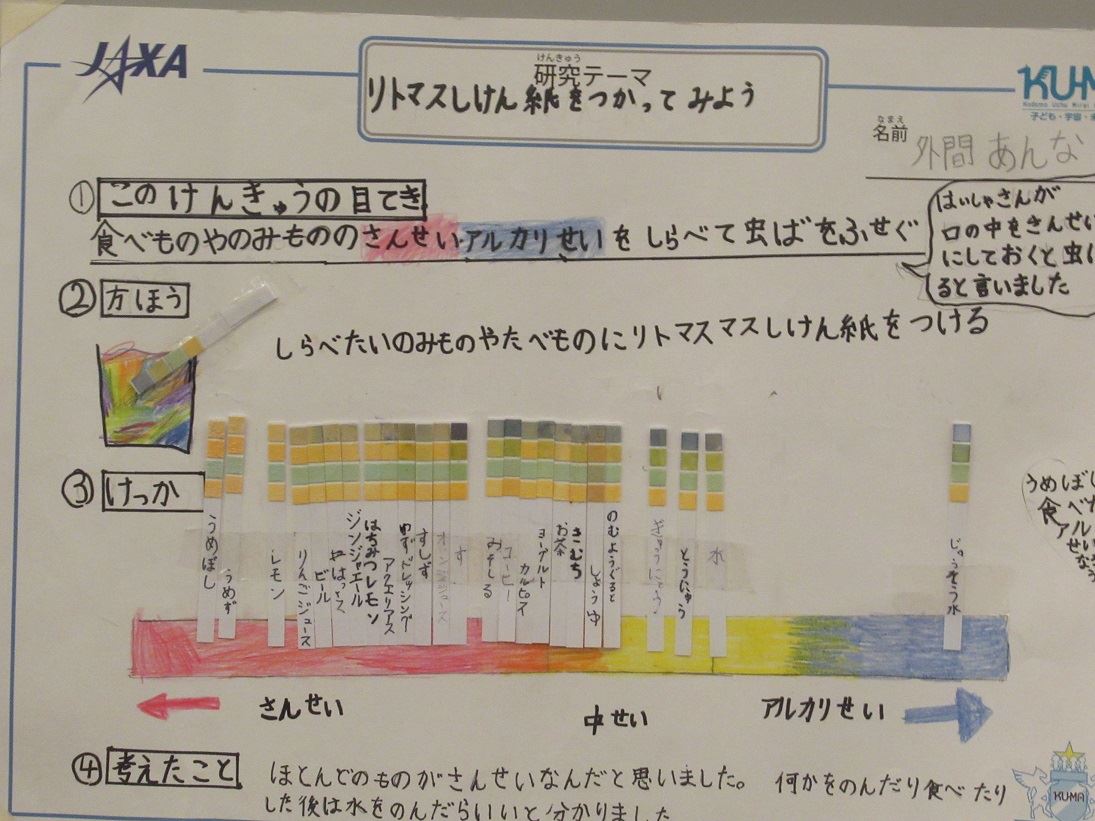 JAXA
けんきゅう
研究テーマ
リトマスしけん紙をつかってみよう
KUM
子ども・宇宙・未
なまえ
名前
外間 あんな
① このけんきゅうの目てき
食べものやのみもののさんせいアルカリせいをしらべて虫ばをふせぐ
はいしゃさんが
口の中をさんせい
にしておくと虫ば
ると言いました
② 方ほう
しらべたいのみものやたべものにリトマスマスしけん紙をつける
③ けっか
うめぼし
うめず
レモン
りんごジュース
ビール
やはっこう
ジンジャエール
はちみつレモン
アクエリアス
ゆずドレッシング
すしず
オレンジジュース
す
みそしる
コーヒー
カルピス
ヨーグルト
お茶
きむち
しょうゆ
のむようぐると
ぎゅうにゅう
とうにゅう
水
じゅうそう水
うめぼし
食べ
アル
せい
さんせい
中せい
アルカリせい
④ 考えたこと
ほとんどのものがさんせいなんだと思いました。 何かをのんだり食べたり
した後は水をのんだらいいと分かりました
KUMA